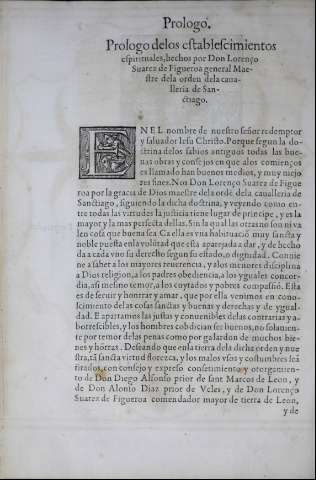 Prologo.
Prologo delos establescimientos
espirituales, hechos por Don Lorenço
Suarez de Figueroa general Mae-
stre dela orden dela caua-
lleria de San-
ctiago.
EN EL nombre de nuestro señor redemptor
y saluador Iesu Christo. Porque segun la do-
ctrina delos sabios antiguos todas las bue-
nas obras y consejos en que alos comienços
es llamado han buenos medios, y muy mejo
res fines. Nos Don Lorenço Suarez de Figue
roa por la gracia de Dios maestre dela ordē dela caualleria de
Sanctiago, siguiendo la dicha doctrina, y veyendo como en-
tre todas las virtudes la justicia tiene lugar de principe, y es la
mayor y la mas perfecta dellas. Sin la qual las otras no son ni va
len cosa que buena sea. Ca ella es vna habituaciō muy sancta y
noble puesta enla volūtad que esta aparejada a dar, y de hecho
da a cada vno su derecho segun su estado, o dignidad. Conuie
ne a saber a los mayores reuerencia, y alos menores disciplina
a Dios religion, a los padres obediencia, a los yguales concor-
dia, asi mesmo temor, a los cuytados y pobres compassiō. Esta
es de seruir y honrrar y amar, que por ella venimos en cono-
scimiento delas cosas sanctas y buenas y derechas y de ygual-
dad. E apartamos las justas y conuenibles delas contrarias y a-
borrescibles, y los hombres cobdician ser buenos, no solamēte
por temor delas penas como por galardon de muchos bie-
nes y hōrras. Deseando que enla tierra dela dicha orden y nue
stra, tā sancta virtud florezca, y los malos vsos y costumbres seā
tirados, con consejo y expreso consetimiento y otorgamien-
to de Don Diego Alfonso prior de sant Marcos de Leon, y
de Don Alonso Diaz prior de Vcles, y de Don Lorenço
Suarez de Figueroa comendador mayor de tierra de Leon,
y de